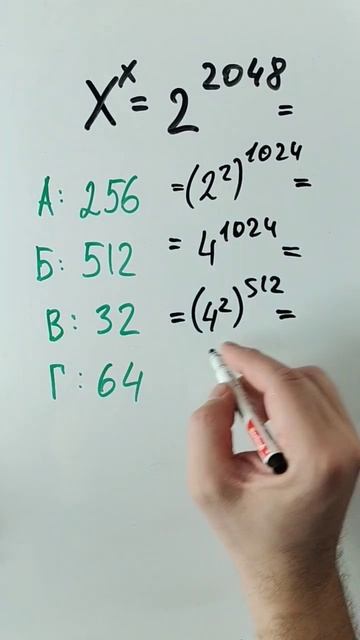 xˣ = 2²⁰⁴⁸ =
А: 256 = (2²)¹⁰²⁴ =
Б: 512 = 4¹⁰²⁴ =
В: 32 = (4²)⁵¹² =
Г: 64